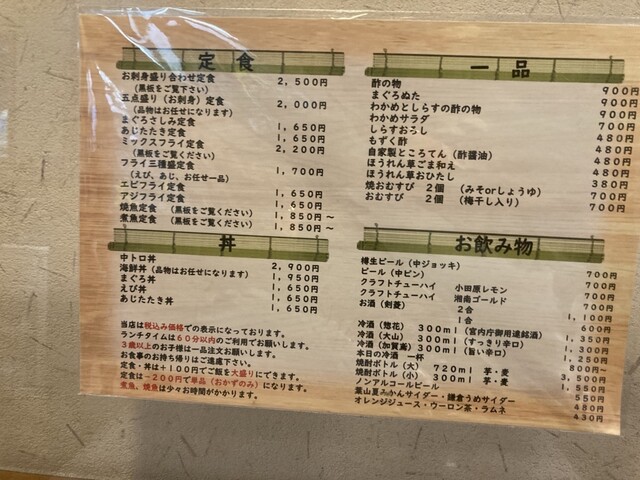 定食
お刺身盛り合わせ定食 2,500円
(黒板をご覧下さい)
五点盛り(お刺身)定食 2,000円
(品物はお任せになります)
まぐろさしみ定食 1,650円
あじたたき定食 1,650円
ミックスフライ定食 2,200円
(黒板をご覧ください)
フライ三種盛定食 1,700円
(えび、あじ、お任せ一品)
エビフライ定食 1,650円
アジフライ定食 1,650円
焼魚定食 (黒板をご覧ください) 1,850円～
煮魚定食 (黒板をご覧ください) 1,850円～
丼
中トロ丼 2,900円
海鮮丼(品物はお任せになります) 1,950円
まぐろ丼 1,650円
えび丼 1,650円
あじたたき丼 1,650円
当店は税込み価格での表示になっております。
ランチタイムは60分以内のご利用でお願いします。
3歳以上のお子様は一品注文お願いします。
お食事のお持ち帰りはご遠慮下さい。
定食・丼は+100円でご飯を大盛りにできます。
定食は-200円で単品(おかずのみ)になります。
煮魚、焼魚は少々お時間がかかります。
一品
酢の物 900円
まぐろぬた 900円
わかめとしらすの酢の物 900円
わかめサラダ 700円
しらすおろし 480円
もずく酢 480円
自家製ところてん(酢醤油) 480円
ほうれん草ごま和え 480円
ほうれん草おひたし 380円
焼おむすび 2個 (みそorしょうゆ) 700円
おむすび 2個 (梅干し入り) 700円
お飲み物
樽生ビール(中ジョッキ) 700円
ビール(中ビン) 700円
クラフトチューハイ 小田原レモン 700円
クラフトチューハイ 湘南ゴールド 700円
お酒(剣菱) 2合 1,100円
1合 600円
冷酒(惣花) 300ml(宮内庁御用達銘酒) 1,350円
冷酒(大山) 300ml(すっきり辛口) 1,300円
冷酒(加賀鳶) 300ml(旨い辛口) 1,250円
本日の冷酒 一杯 800円～
焼酎ボトル(大) 720ml 芋・麦 3,500円
焼酎ボトル(小) 300ml 芋・麦 1,550円
ノンアルコールビール 550円
葉山夏みかんサイダー・鎌倉うめサイダー 480円
オレンジジュース・ウーロン茶・ラムネ 430円